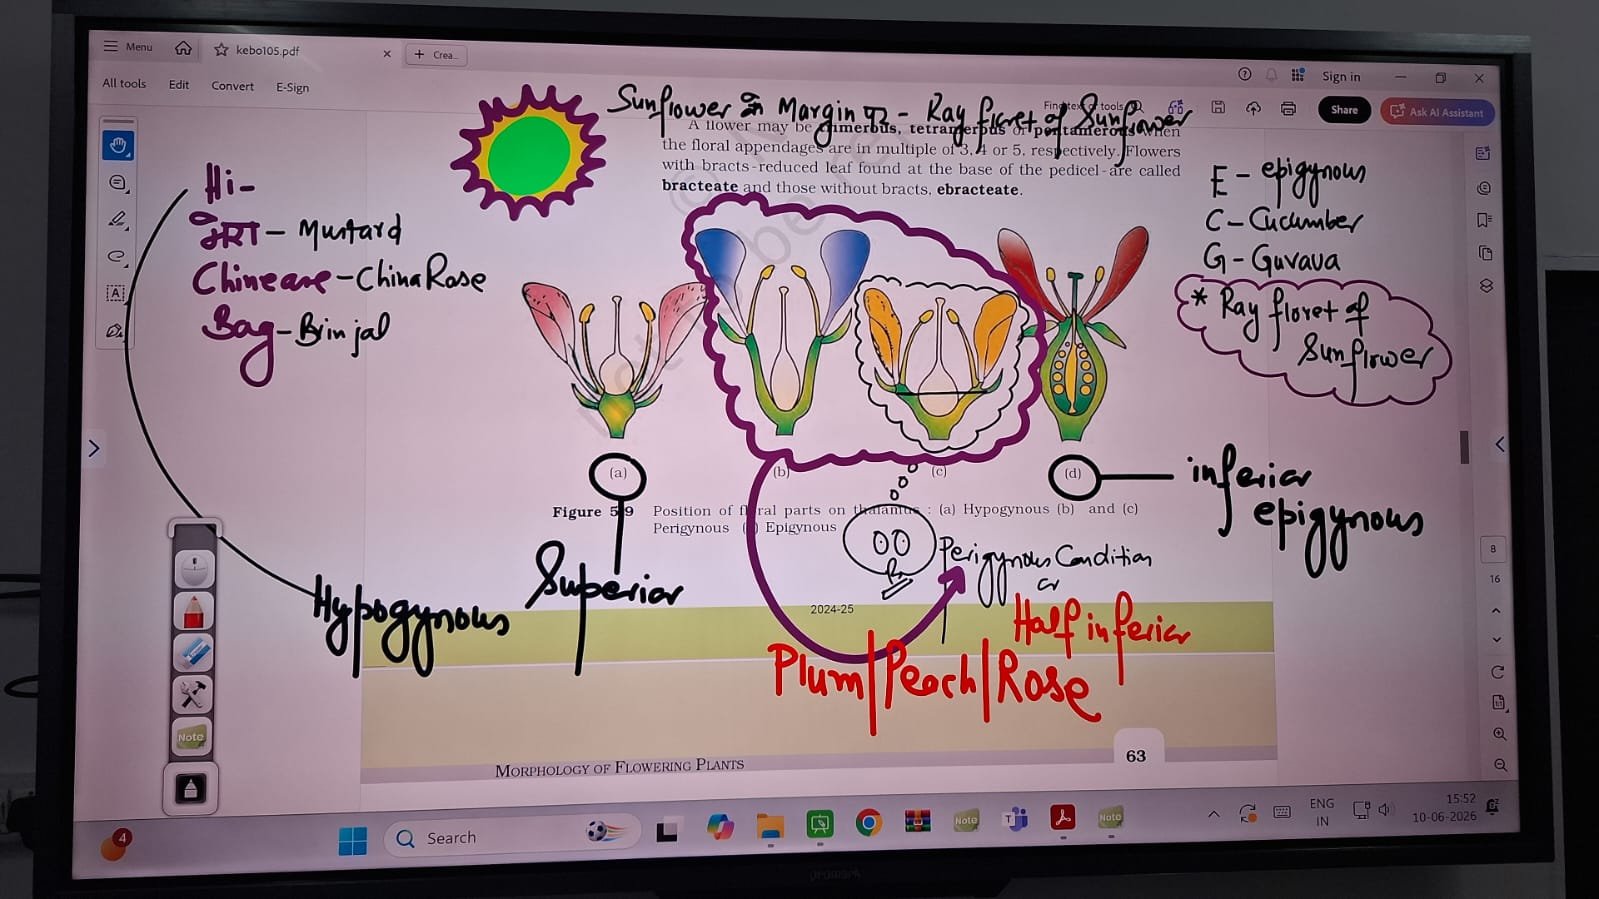 Menu
kebo105.pdf
+ Crea...
Sign in
All tools
Edit
Convert
E-Sign
Find text or tools
Share
Ask AI Assistant
Sunflower के Margin पर - Ray floret of Sunflower
A flower may be trimerous, tetramerous or pentamerous when
the floral appendages are in multiple of 3, 4 or 5, respectively. Flowers
with bracts-reduced leaf found at the base of the pedicel-are called
bracteate and those without bracts, ebracteate.
Hi-
Mustard
Chinease - China Rose
Bag - Brinjal
E - epigynous
C - Cucumber
G - Guvava
* Ray floret of
Sunflower
(a)
(b)
(c)
(d)
inferior
epigynous
Figure 5.9 Position of floral parts on thalamus : (a) Hypogynous (b) and (c)
Perigynous (d) Epigynous
Hypogynous
Superior
Perigynous Condition
or
Half inferior
2024-25
Plum/Peach/Rose
MORPHOLOGY OF FLOWERING PLANTS
63
8
16
Note
4
Search
Note
Note
ENG
IN
15:52
10-06-2026